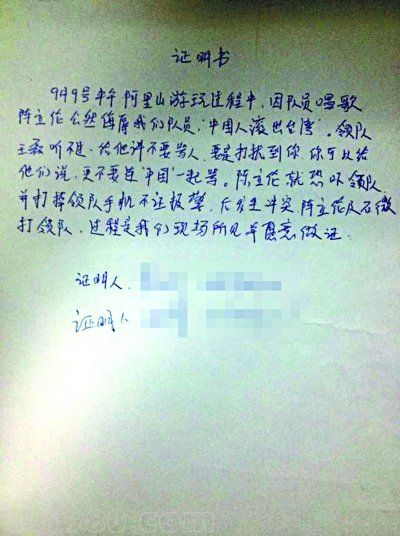 证明书
949号车在阿里山游玩过程中,因队员唱歌
陈立伦公然侮辱我们队员,"中国人滚出台湾"。领队
王磊听不过,给他讲不要骂人,要是打扰到你,你可以给
他们说,更不要连"中国"一起骂。陈立伦就恐吓领队,
并打掉领队手机不让报警,后发生冲突陈立伦及石
打领队,过程是我们现场所见并愿意做证.
证明人.
证明人